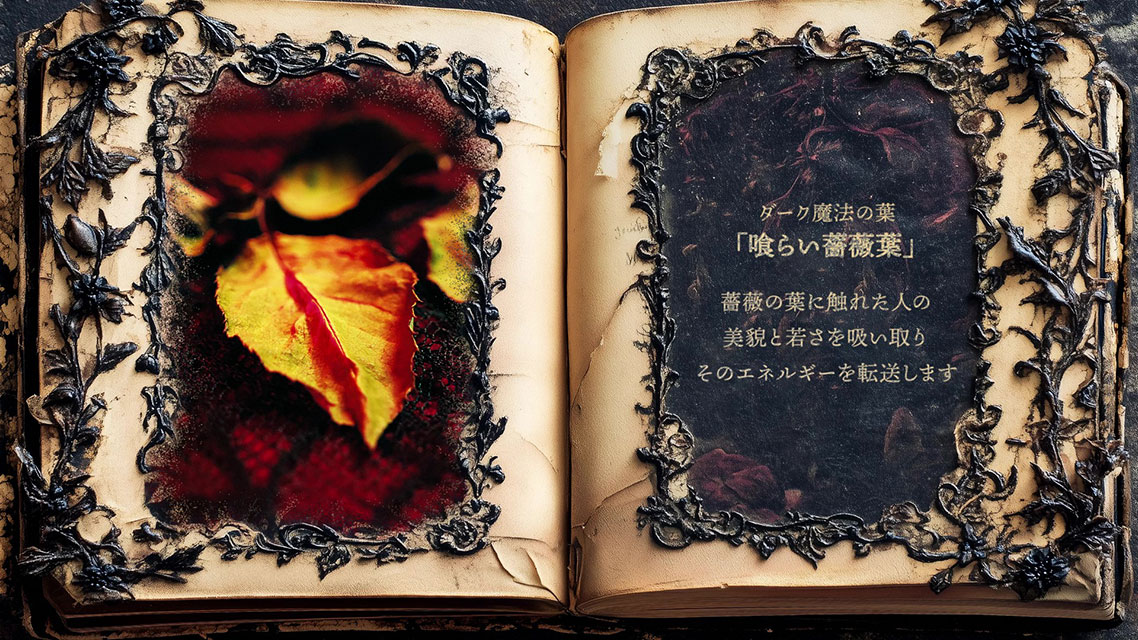 ダーク魔法の葉
「喰らい薔薇葉」
薔薇の葉に触れた人の
美貌と若さを吸い取り
そのエネルギーを転送します